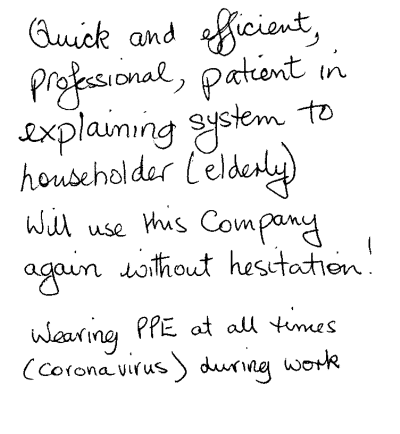 Quick and efficient,
professional, patient in
explaining system to
householder (elderly)
Will use this Company
again without hesitation!
Wearing PPE at all times
(coronavirus) during work